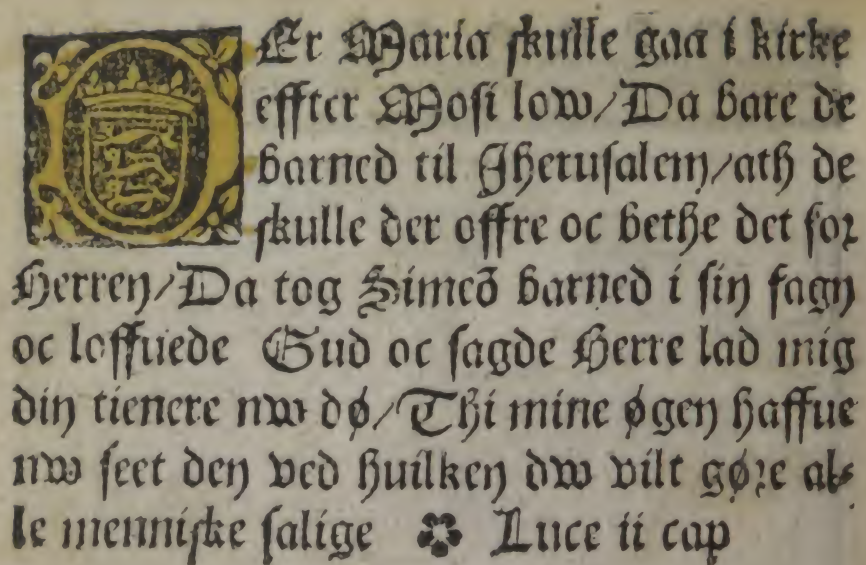 DEr Maria ſkulle gaa i kirke
effter Moſi low/Da bare de
barned til Jheruſalem/ath de
ſkulle der offre oc bethe det foꝛ
Herren/Da tog Simeō barned i ſin fagn
oc loffuede Gud oc ſagde Herre lad mig
din tienere nw dø/Thi mine øgen haffue
nw ſeet den ved huilken dw vilt gøꝛe al⸗
le menniſke ſalige ✿ Luce ii cap